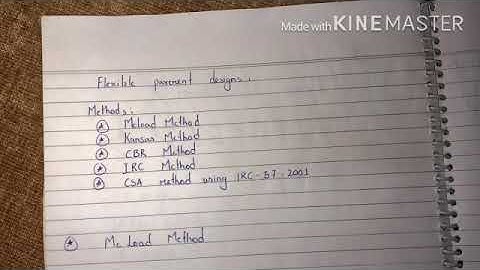 Made with KINEMASTER
Flexible pavement designs.
Methods:
Mcload Method
Kansas Method
CBR Method
IRC Method
CSA method using IRC-37-2001
Mc Load Method